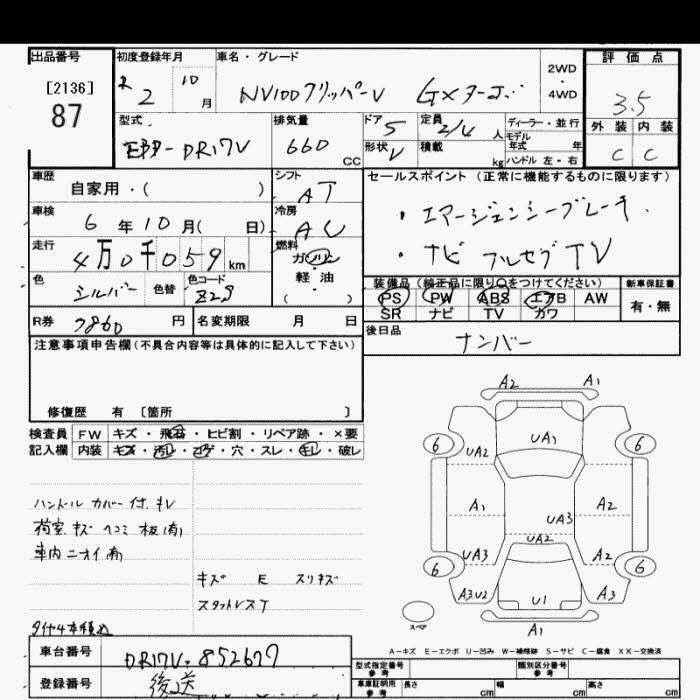 出品番号
[2136]
87
初度登録年月
R 2 10 月
車名・グレード
NV100クリッパーV GXターボ
2WD
・
4WD
評価点
3.5
外装 内装
C C
型式
DR17V
排気量
660 CC
ドア 5
形状 V
定員 2/4 人
積載 kg
ディーラー・並行
モデル
年式 年
ハンドル 左・右
車歴
自家用・( )
シフト
AT
セールスポイント (正常に機能するものに限ります)
・エマージェンシーブレーキ
・ナビ フルセグTV
車検
6 年 10 月( 日)
冷房
AC
走行
4万0千059 km
燃料
ガソリン
軽油
( )
色
シルバー
色替
色コード
Z2S
装備品 (純正品に限り○をつけてください)
新車保証書
PS PW ABS エアB AW
SR ナビ TV カワ
有・無
R券 7860 円
名変期限 月 日
後日品
ナンバー
注意事項申告欄 (不具合内容等は具体的に記入して下さい)
修復歴 有 [箇所 ]
検査員 FW キズ・飛石・ヒビ割・リペア跡・×要
記入欄 内装 キズ・汚レ・コゲ・穴・スレ・キレ・破レ
ハンドル カバー付 キレ
荷室 キズ ヘコミ 板(有)
車内ニオイ有
キズ E スリキズ
スタットレスT
タイヤ4本積込
A2 A1
6 UA2 UA1 6
A1 UA3 A2
UA2
UA3 A2
6 6
A3U2 U1 A3
A1
スペア
A-キズ E-エクボ U-凹み W-補修跡 S-サビ C-腐食 XX-交換済
車台番号
DR17V-852677
登録番号
後送
型式指定番号
参考
類別区分番号
参考
車庫証明用
参考
長さ cm 幅 cm 高さ cm